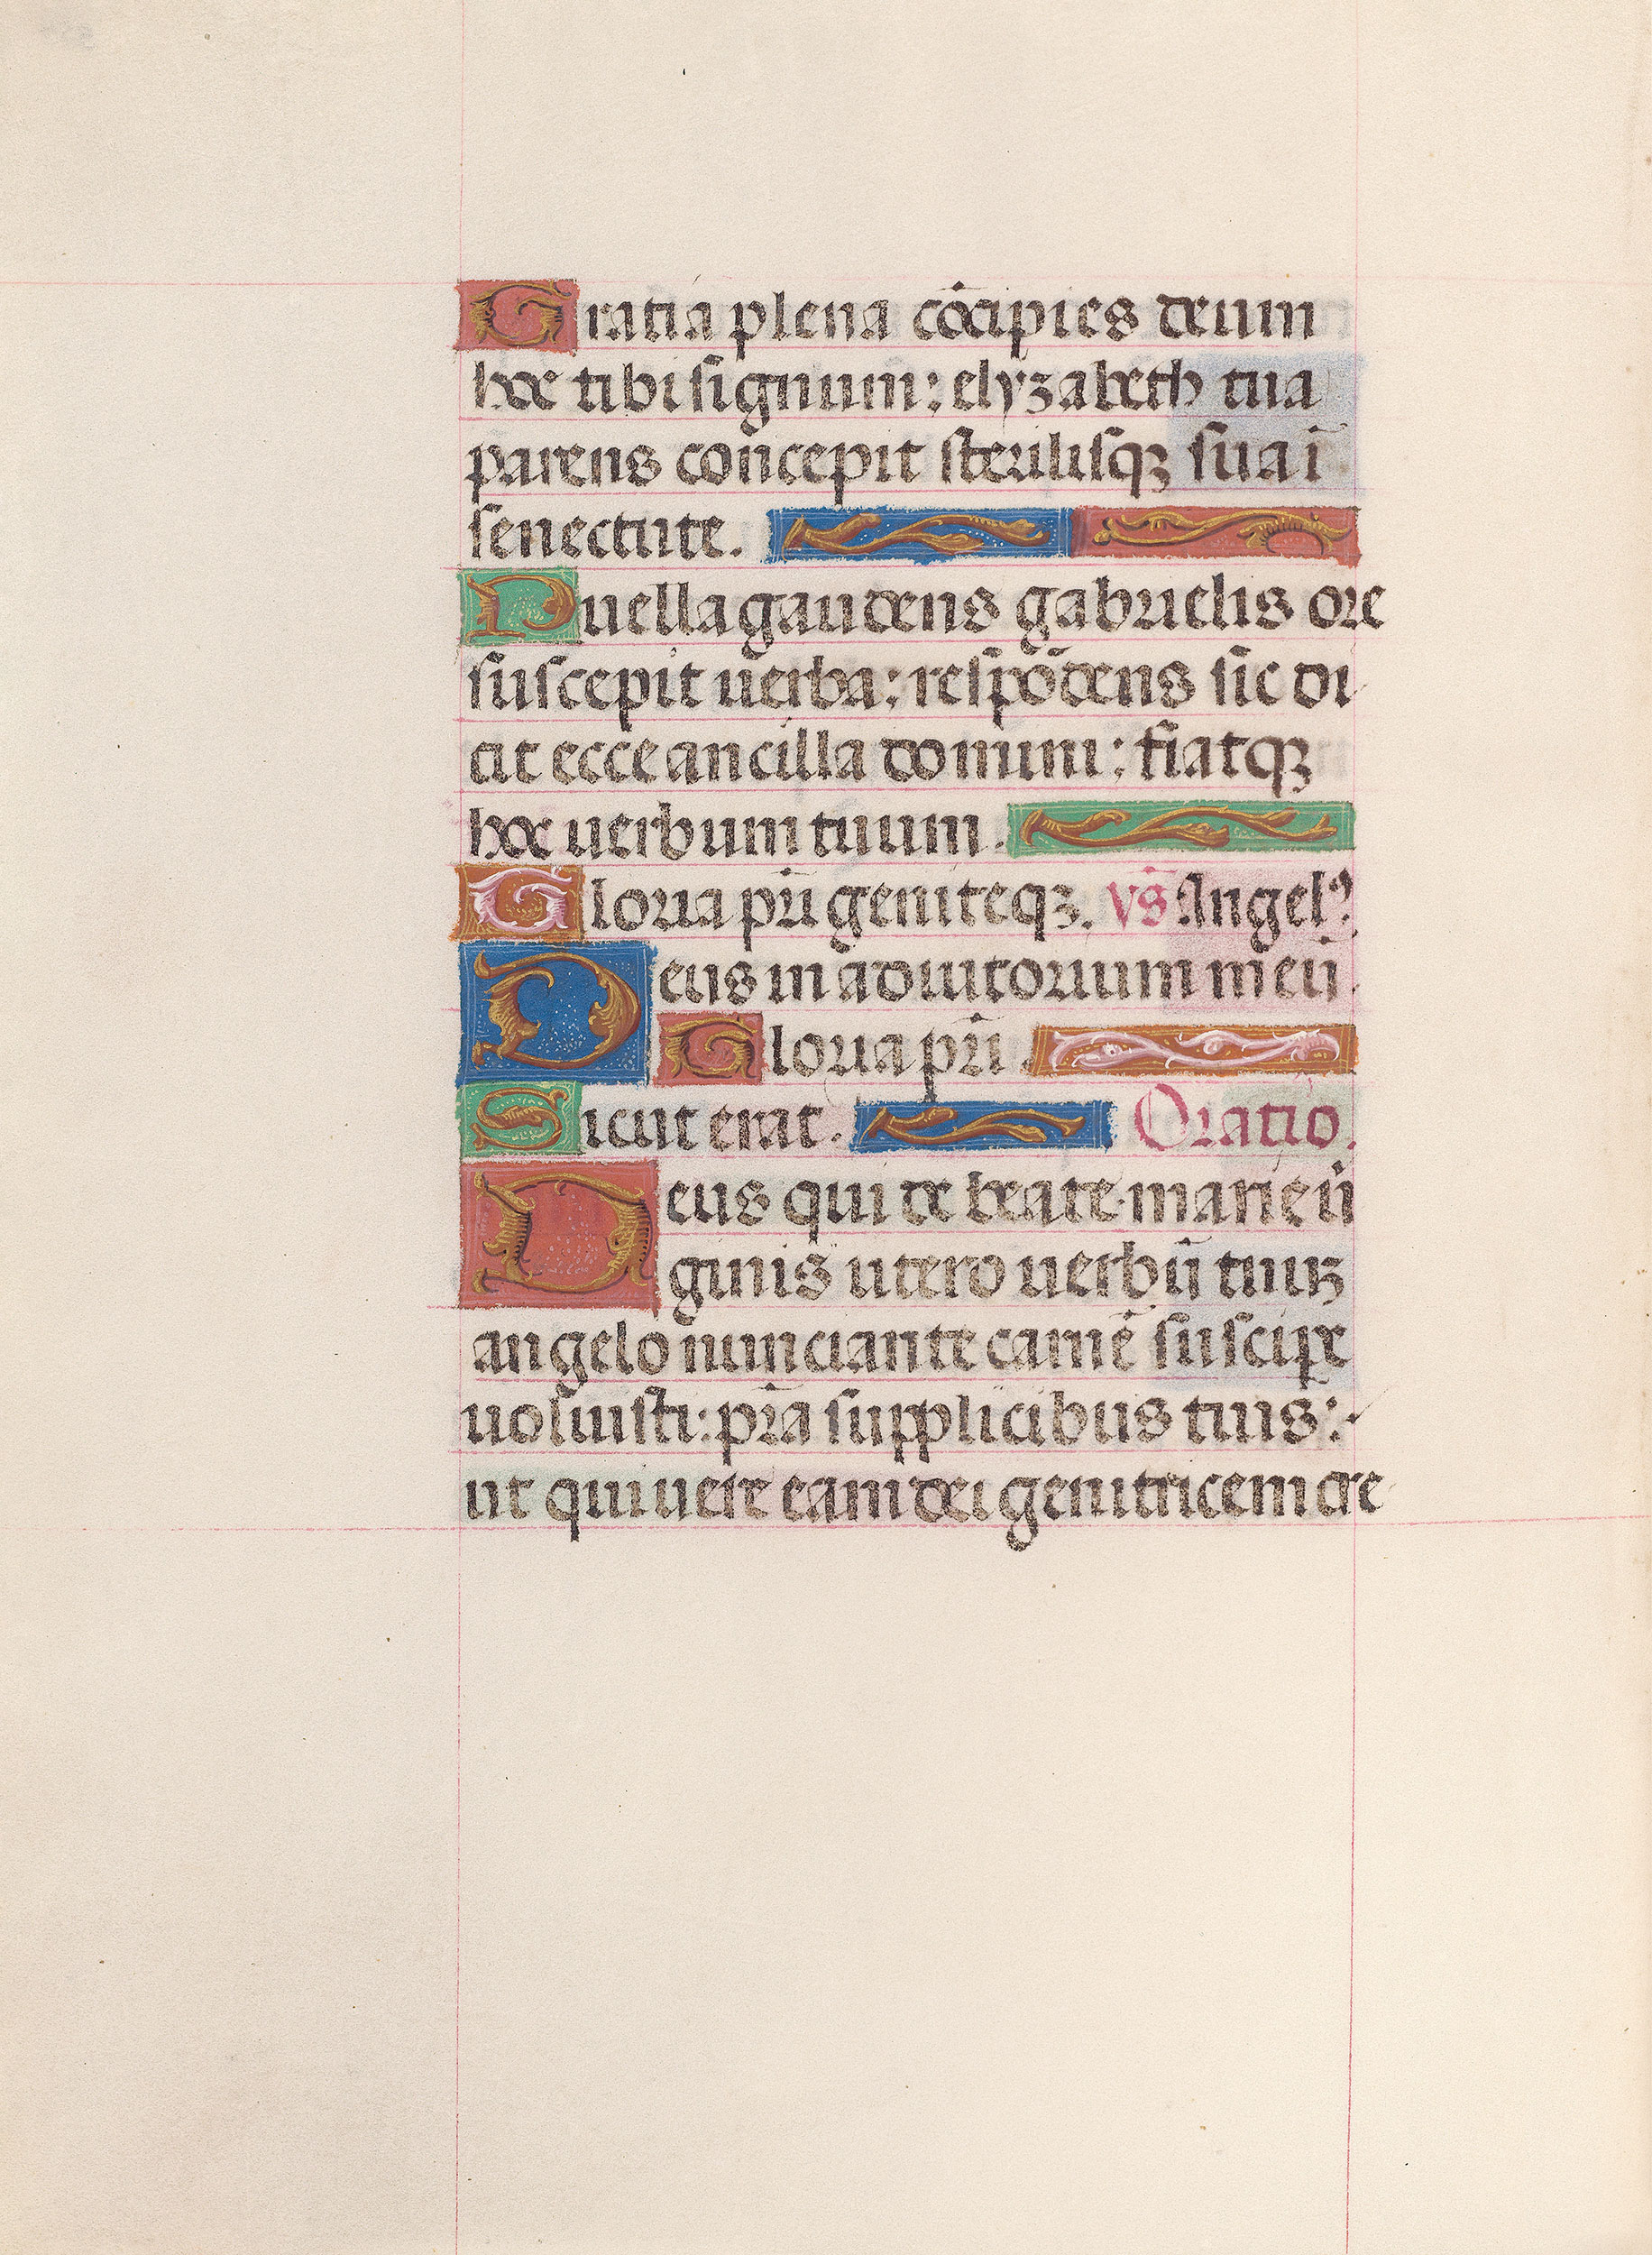 Gratia plena cōcipies deum
hoc tibi signum: elyzabeth tua
parens concepit sterilisqꝫ sua ī
senectute.
Puella gaudens gabrielis ore
suscepit uerba: respōdens sic di
cit ecce ancilla domini: fiatqꝫ
hoc uerbum tuum.
Gloria pr̄i geniteqꝫ. Vs̄ Angelꝰ.
Deus in adiutorium meū.
Gloria pr̄i.
Sicut erat. Oratio.
Deus qui de beate marie ui
ginis utero uerbū tuuꝫ
angelo nunciante carnē suscipe
uoluisti: pr̄a supplicibus tuis:
ut qui uere eam dei genitricem cre